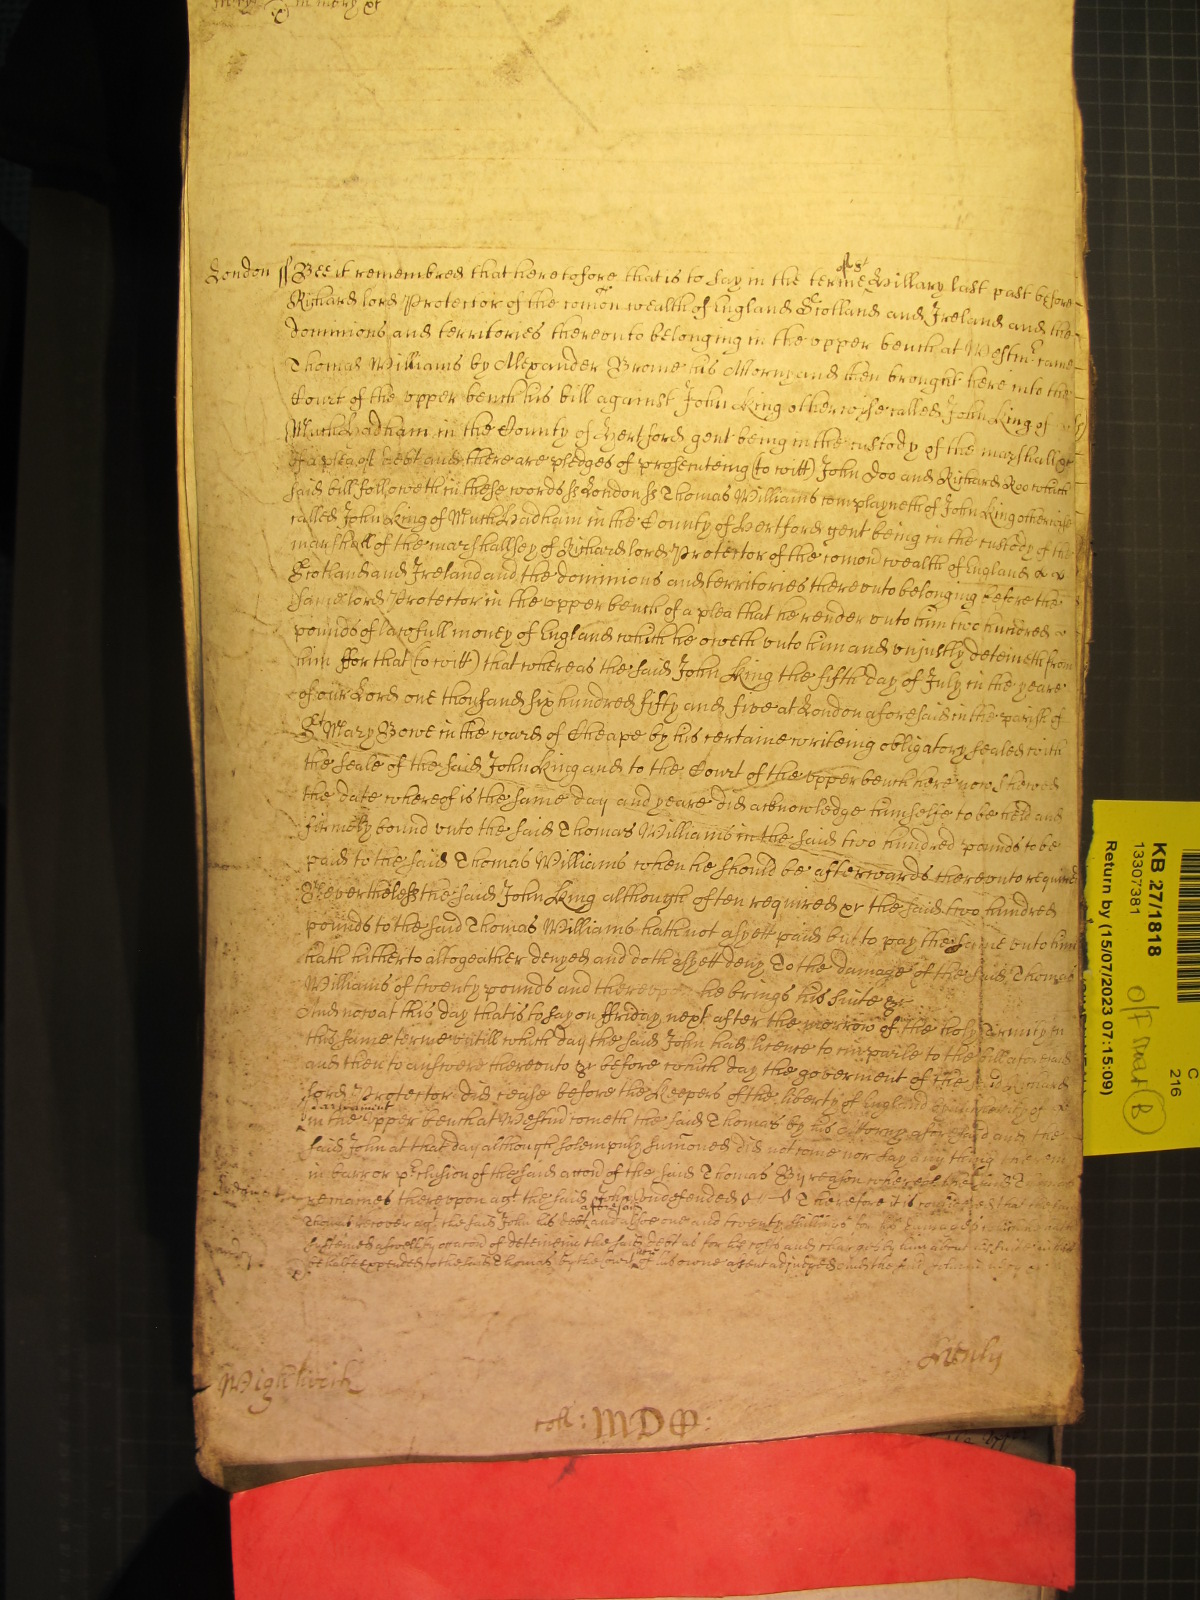 London ss Bee it remembred that heretofore that is to say in the terme of St Hillary last past before
Richard lord Protector of the comon wealth of England Scotland and Ireland and the
dominions and territories thereunto belonging in the upper bench at Westmr came
Thomas Williams by Alexander Brome his Attorny and then brought here into the
Court of the upper bench his bill against John King otherwise called John King of
Much Hadham in the County of Hertford gent being in the custody of the marshall &c
of a plea of debt and there are pledges of prosecuteing (to witt) John Doo and Richard Roo which
said bill followeth in these words ss London ss Thomas Williams complayneth of John King otherwise
called John King of Much Hadham in the County of Hertford gent being in the custody of the
marshall of the marshallsey of Richard lord Protector of the comon wealth of England
Scotland and Ireland and the dominions and territories thereunto belonging before the
same lord Protector in the upper bench of a plea that he render unto him two hundred
pounds of lawfull money of England which he oweth unto him and unjustly deteineth from
him ffor that (to witt) that whereas the said John King the fifth day of July in the yeare
of our Lord one thousand six hundred fifty and five at London aforesaid in the parish of
St Mary Bowe in the ward of Cheape by his certaine writeing obligatory sealed with
the seale of the said John King and to the Court of the upper bench here now shewed
the date whereof is the same day and yeare did acknowledge himselfe to be held and
firmely bound unto the said Thomas Williams in the said two hundred pounds to be
paid to the said Thomas Williams when he should be afterwards thereunto required
Neverthelesse the said John King although often required &c the said two hundred
pounds to the said Thomas Williams hath not as yett paid but to pay the same unto him
hath hitherto altogeather denyed and doth as yett deny To the damage of the said Thomas
Williams of twenty pounds and thereupon he brings his suite &c
And now at this day that is to say on ffriday next after the morrow of the holy Trinity in
this same terme untill which day the said John had licence to imparle to the bill aforesaid
and then to answere thereunto &c before which day the goverment of the said Richard
lord Protector did cease before the Keepers of the liberty of England by authority of
parliament
in the upper bench at Westmr cometh the said Thomas by his Attorny aforesaid and the
said John at that day although solempnly sumoned did not come nor say any thing
in barr or preclusion of the said accon of the said Thomas By reason whereof the said Thomas
remaines thereupon agt the said John undefended Therefore it is considered that the said
Judgmt
aforesaid
Thomas recover agt the said John his debt and alsoe one and twenty shillings for his damages which he hath
susteined aswell by occacon of deteineing the said debt as for his costs and charges by him about his suite in this
behalfe expended to the said Thomas by the Court of his owne assent adjudged And the said John in mercy &c
Wightwick
coll:
KB 27/1818
13307381
Return by (15/07/2023 07:15:09)
C
216